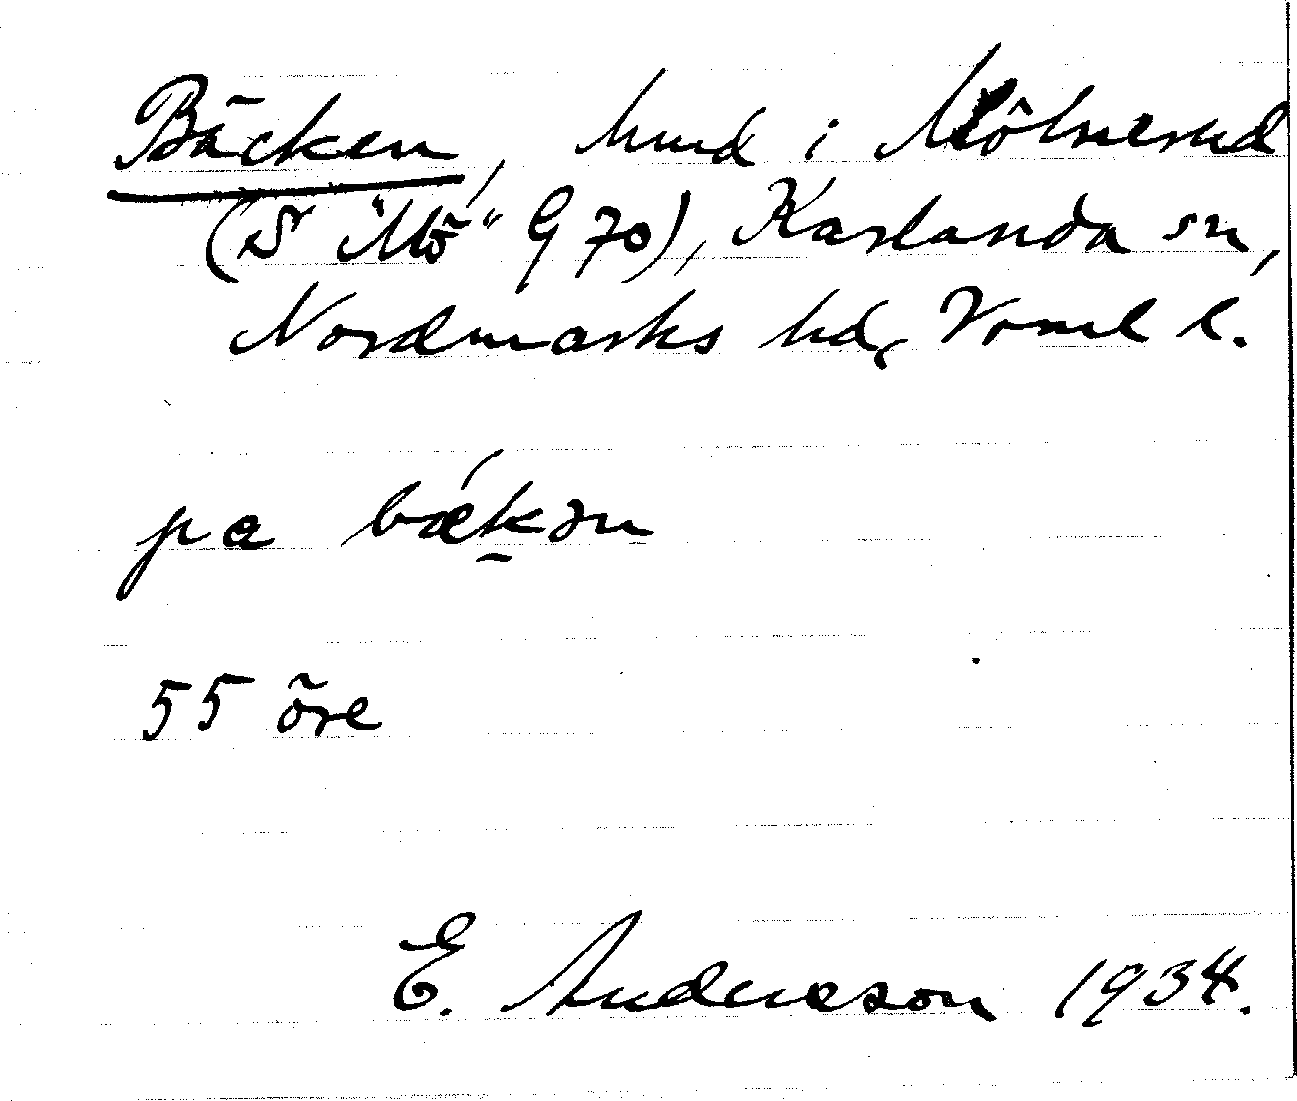 Bäcken, hmd i Mölnerud
(S "Mö" G 70), Karlanda sn,
Nordmarks hd, Vrml l.
pa bækən
55 öre
E. Anderson 1934.